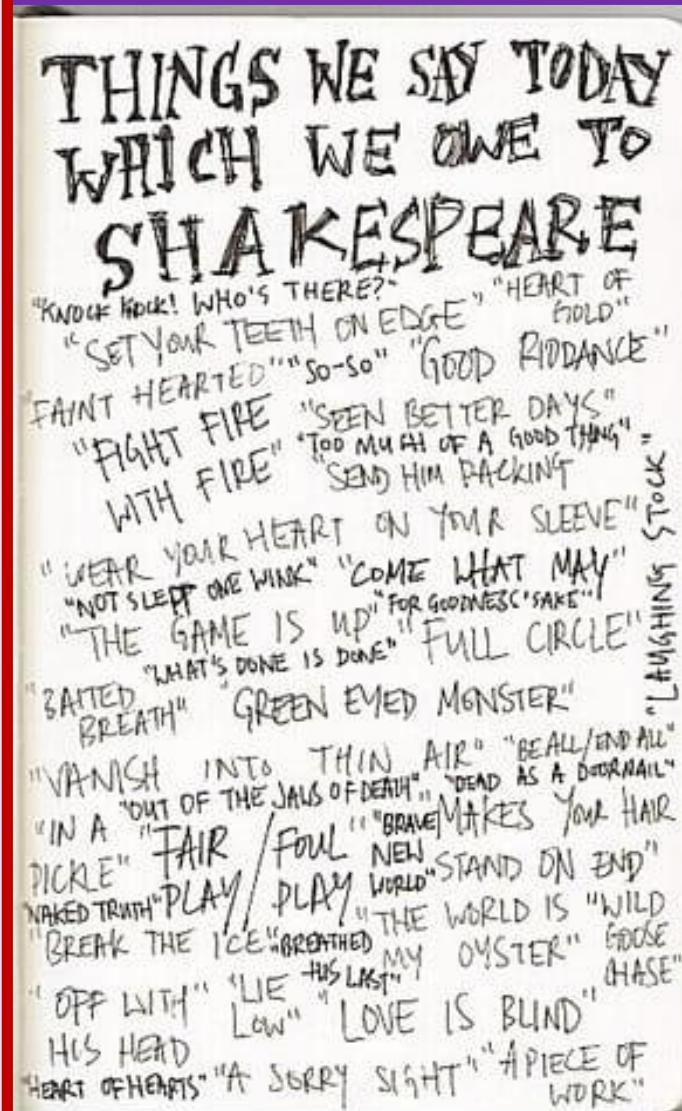 THINGS WE SAY TODAY
WHICH WE OWE TO
SHAKESPEARE
"KNOCK KNOCK! WHO'S THERE?"
"HEART OF
GOLD"
"SET YOUR TEETH ON EDGE"
"FAINT HEARTED" "SO-SO" "GOOD RIDDANCE"
"FIGHT FIRE
WITH FIRE"
"SEEN BETTER DAYS"
"TOO MUCH OF A GOOD THING"
"SEND HIM PACKING"
"WEAR YOUR HEART ON YOUR SLEEVE"
"LAUGHING STOCK"
"NOT SLEPT ONE WINK" "COME WHAT MAY"
"THE GAME IS UP" "FOR GOODNESS' SAKE"
"WHAT'S DONE IS DONE" "FULL CIRCLE"
"BAITED
BREATH"
"GREEN EYED MONSTER"
"VANISH INTO THIN AIR" "BE ALL/END ALL"
"OUT OF THE JAWS OF DEATH" "DEAD AS A DOORNAIL"
"IN A
PICKLE"
"FAIR
PLAY/
FOUL
PLAY"
"BRAVE
NEW
WORLD"
MAKES YOUR HAIR
STAND ON END"
"NAKED TRUTH"
"THE WORLD IS
MY OYSTER"
"WILD
GOOSE
CHASE"
"BREAK THE ICE" "BREATHED
HIS LAST"
"OFF WITH"
HIS HEAD
"LIE
LOW"
"LOVE IS BLIND"
"HEART OF HEARTS" "A SORRY SIGHT" "A PIECE OF
WORK"